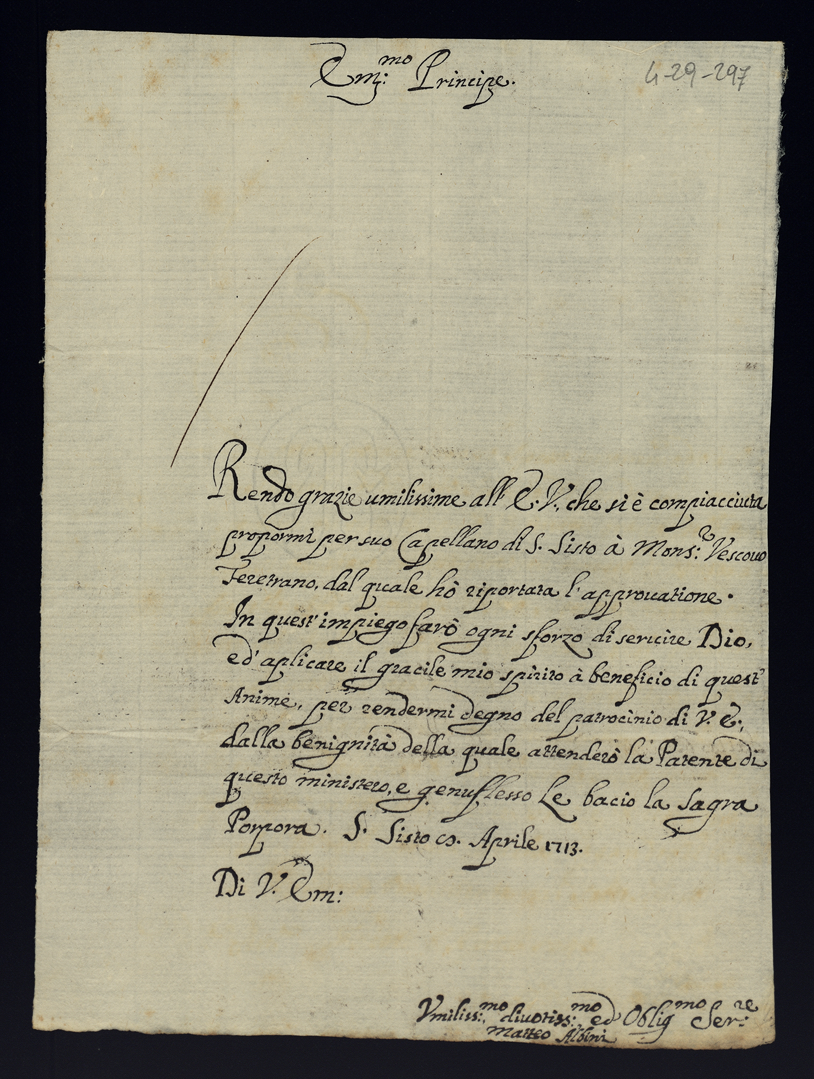 Em:mo Principe.
4-29-297
Rendo grazie umilissime all' E. V. che si è compiacciuta
propormi per suo Capellano di S. Sisto à Mons:re Vescovo
Feretrano, dal quale hò riportata l'approvatione.
In quest' impiego farò ogni sforzo di servire Dio,
ed' aplicare il gracile mio spirito à beneficio di quest'
Anime, per rendermi degno del patrocinio di V. E.,
dalla benignità della quale attenderò la Patente di
questo ministero, e genuflesso Le bacio la Sagra
Porpora. S. Sisto Aprile 1713.
Di V. Em:
Vmiliss:mo divotiss:mo ed Oblig:mo Ser:re
Matteo Albini